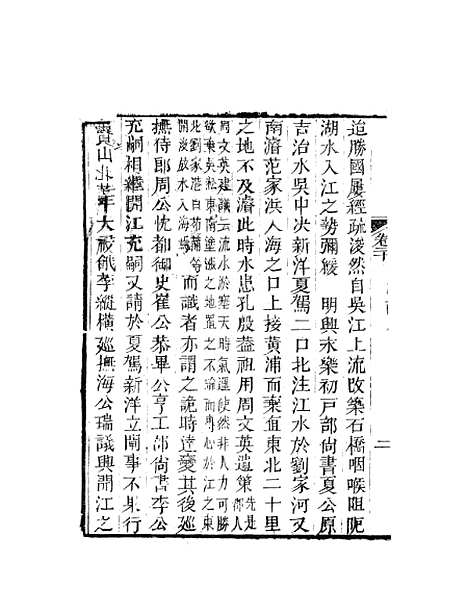 迨勝國屢經疏浚然自吳江上流改築石橋咽喉阻阨
湖水入江之勢彌緩　明興永樂初戸部尚書夏公原
吉治水吳中決新洋夏駕二口北注江水於劉家河又
南濬范家浜入海之口上接黃浦而棄宜東北二十里
之地不及濬此時水患孔殷葢祖用周文英遺策先是郡人
周文英建議云流水淤塞天時氣運使然非人力可勝
欲棄吳松東南塗漲之地置之不論而專心於江之東
北劉家港白茆浦等
開浚放水入海而識者亦謂之詭時達變其後廵
撫侍郎周公忱都御史崔公恭畢公亨工部尚書李公
充嗣相繼開江充嗣又請於夏駕新洋立閘事不果行
寶山年大祲餓莩縱橫廵撫海公瑞議興開江之
卷
二